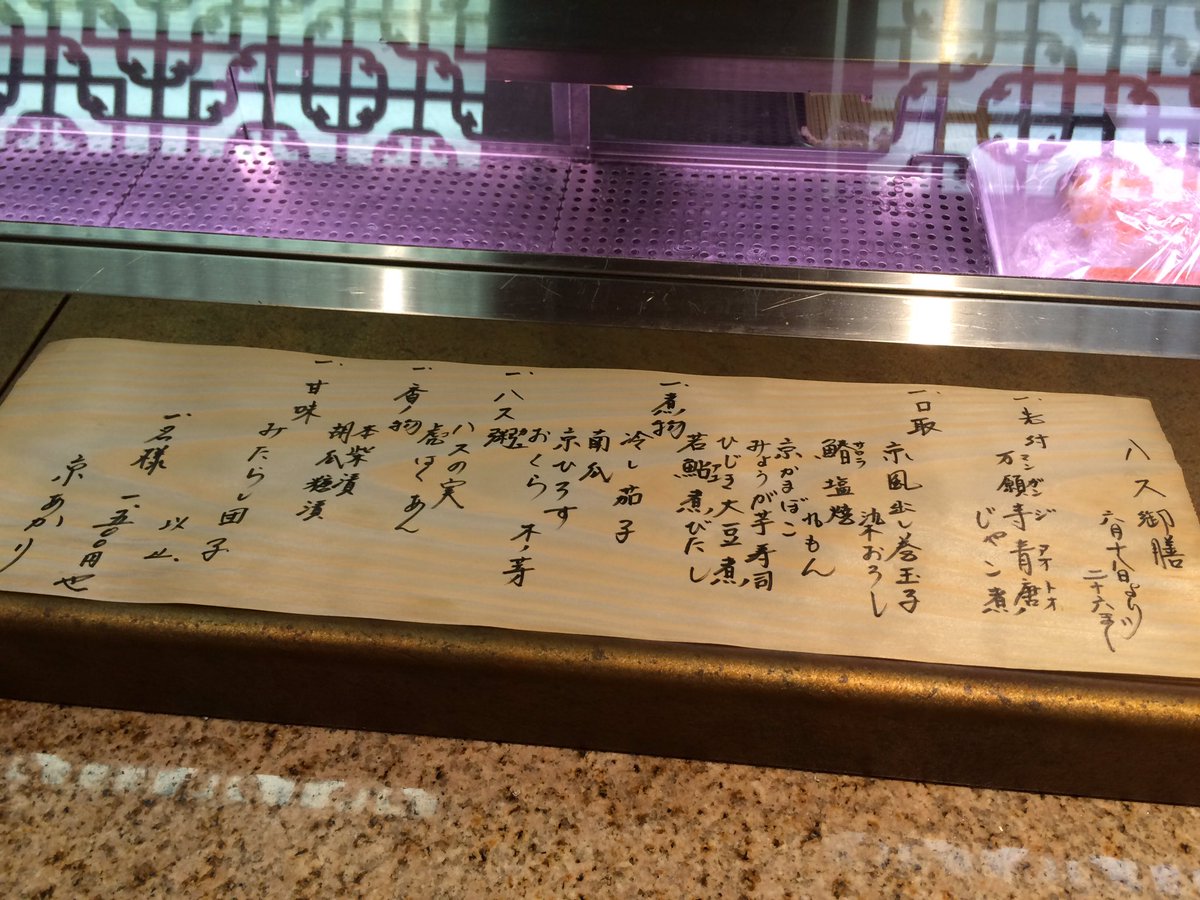 ハス御膳
六月十八日より
二十六まで
一、先付
万願寺青唐ノ
マンガンジアオトオ
じゃこ煮
一、口取
京風出し巻玉子
染おろし
鰆塩焼
サワラ
れもん
京かまぼこ
みょうが芋寿司
ひじき大豆煮
若鮎煮びたし
一、煮物
冷し茄子
南瓜
京ひろす
おくら 木ノ芽
一、ハス粥
ハスの実
べっこうあん
一、香ノ物
本柴漬
胡瓜糠漬
一、甘味
みたらし団子
以上
一、名様
一、五〇〇円也
京あかり